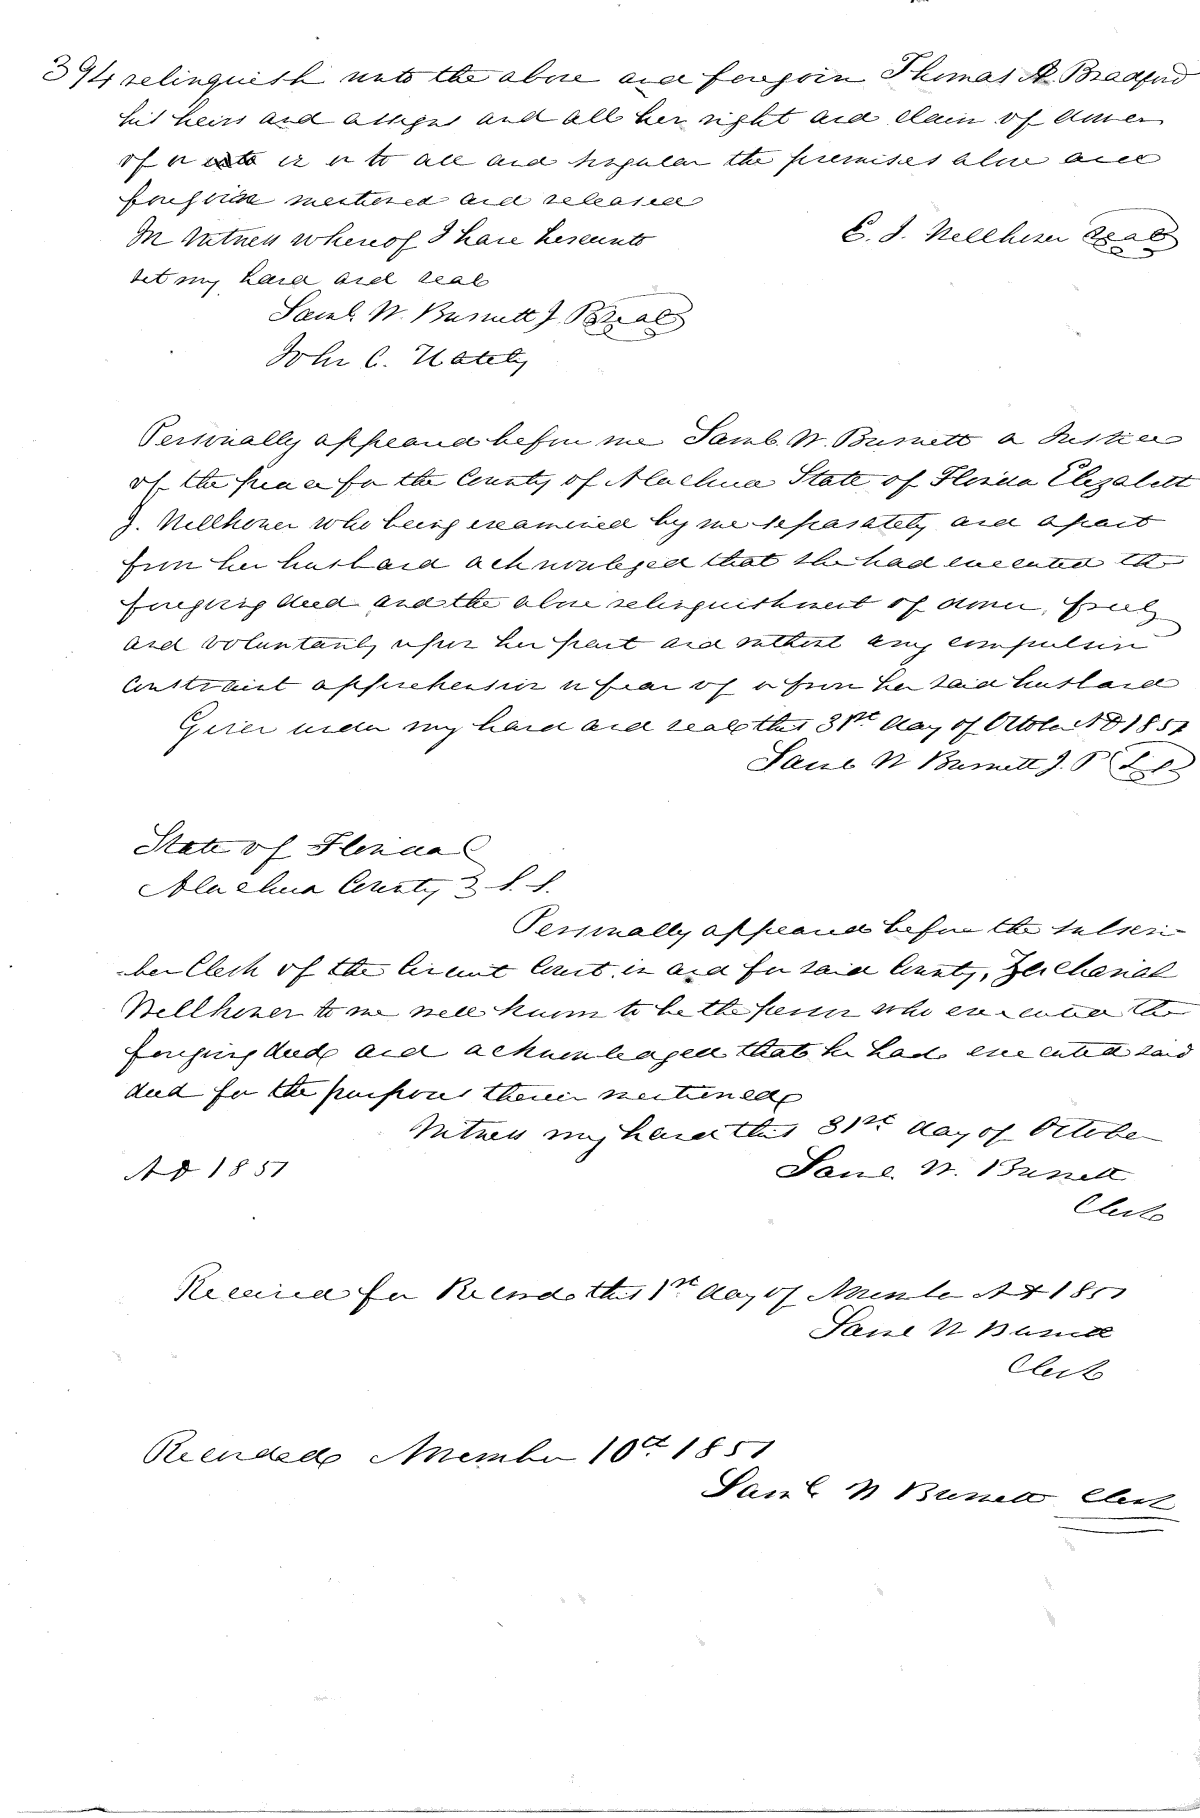 394 relinquish unto the above and foregoin Thomas A. Bradford
his heirs and assigns and all her right and claim of dower
of or in or to all and singular the premises above and
foregoin mentioned and released
In Witness whereof I have hereunto E. J. Wellhoner Seal
set my hand and seal
Saml. W. Burnett J. P Seal
John C.
Personally appeared before me Saml. W. Burnett a Justice
of the peace for the County of Alachua State of Florida Elizabeth
J. Wellhoner who being examined by me separately and apart
from her husband acknowledged that she had executed the
foregoing deed and the above relinquishment of dower, freely
and voluntarily upon her part and without any compulsion
constraint apprehension or fear of or from her said husband
Given under my hand and seal this 31st day of October AD 1851
Saml W Burnett J. P L.S.
State of Florida
Alachua County } S. S.
Personally appeared before the subscri-
ber Clerk of the Circuit Court in and for said County, Zachariah
Wellhoner to me well known to be the person who executed the
foregoing deed and acknowledged that he had executed said
deed for the purposes therein mentioned
Witness my hand this 31st day of October
AD 1851 Saml. W. Burnett
Clerk
Received for Record this 1st day of November AD 1851
Saml W Burnett
Clerk
Recorded November 10th 1851
Saml W Burnett Clerk